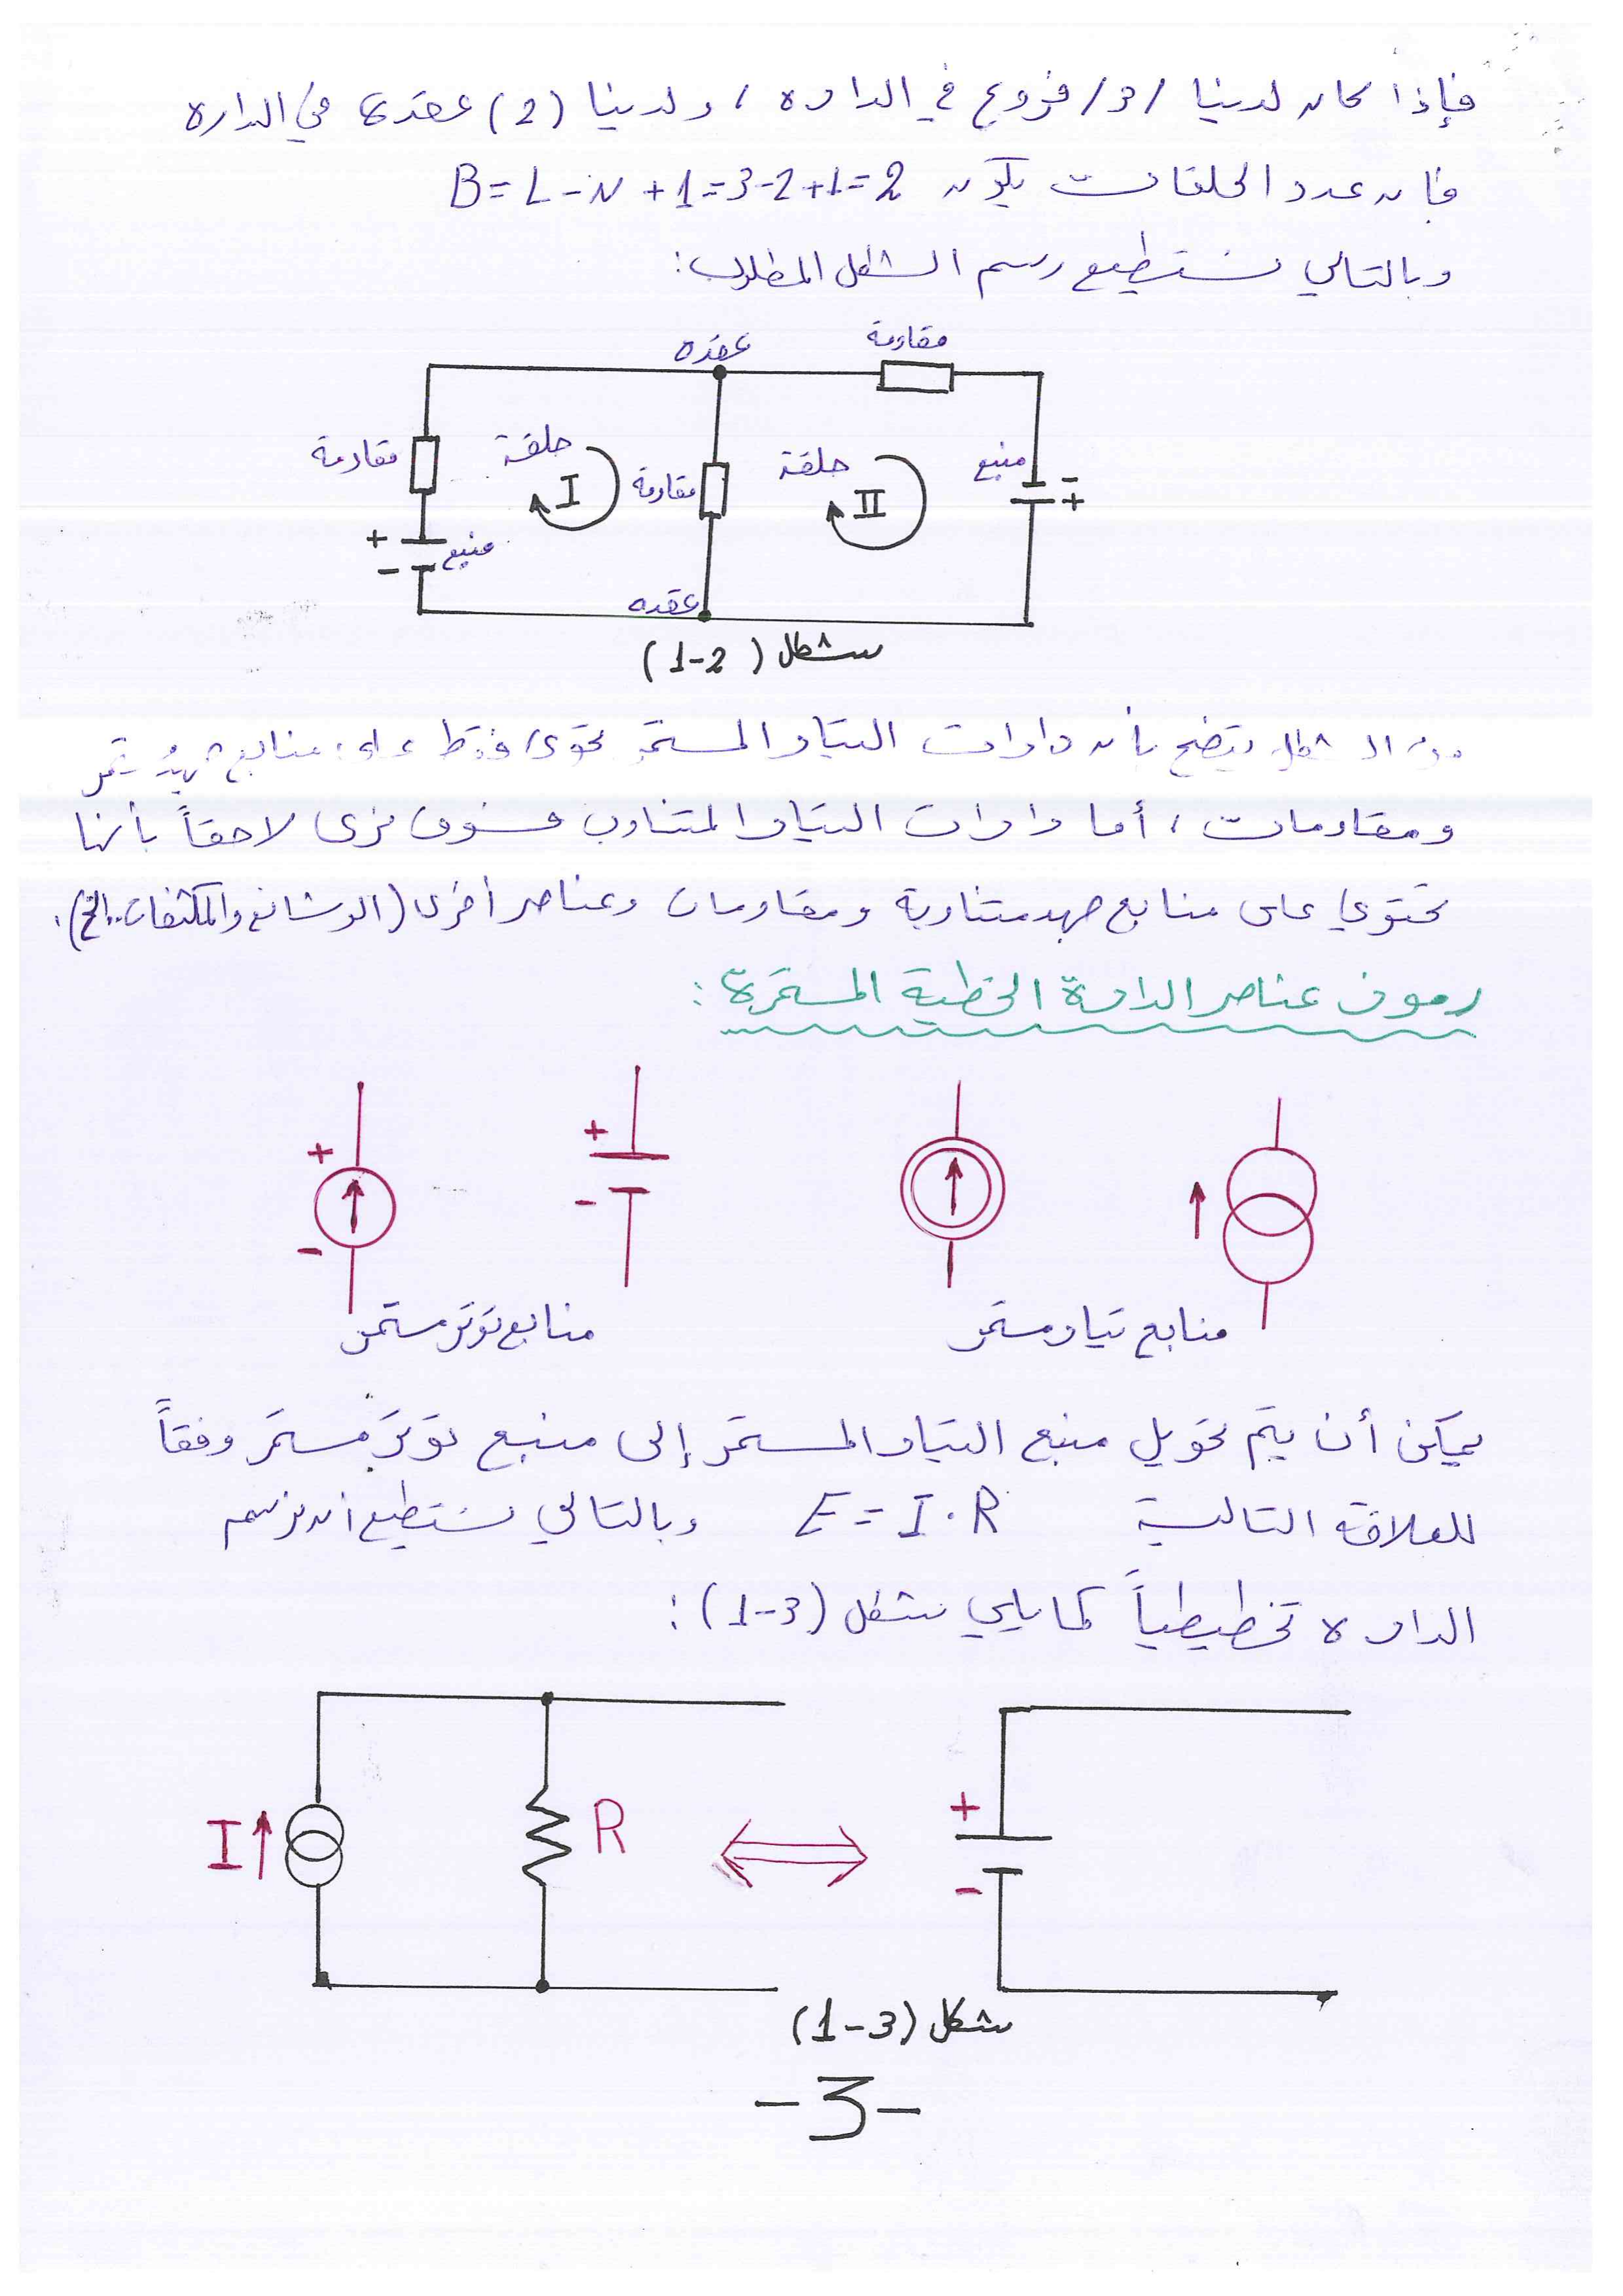 فإذا كان لدينا /3/ فروع في الدارة ، ولدينا (2) عقدة في الدارة
فإن عدد الحلقات يكون B = L - N + 1 = 3-2+1 = 2
وبالتالي نستطيع رسم الشكل المطلوب:
عقدة
مقاومة
مقاومة
حلقة
I
مقاومة
حلقة
II
منبع
-
+
+
-
منبع
عقدة
شكل (1-2)
من الشكل يتضح بأن دارات التيار المستمر تحوي فقط على منابع جهد مستمر
ومقاومات ، أما دارات التيار المتناوب فسوف نرى لاحقاً بأنها
تحتوي على منابع جهد متناوبة ومقاومات وعناصر أخرى (الوشائع والمكثفات..الخ).
رموز عناصر الدارة الخطية المستمرة :
+
-
+
-
منابع توتر مستمر
منابع تيار مستمر
يمكن أن يتم تحويل منبع التيار المستمر إلى منبع توتر مستمر وفقاً
للعلاقة التالية E = I . R وبالتالي نستطيع أن نرسم
الدارة تخطيطياً كما يلي شكل (1-3) :
I
R
+
-
شكل (1-3)
-3-